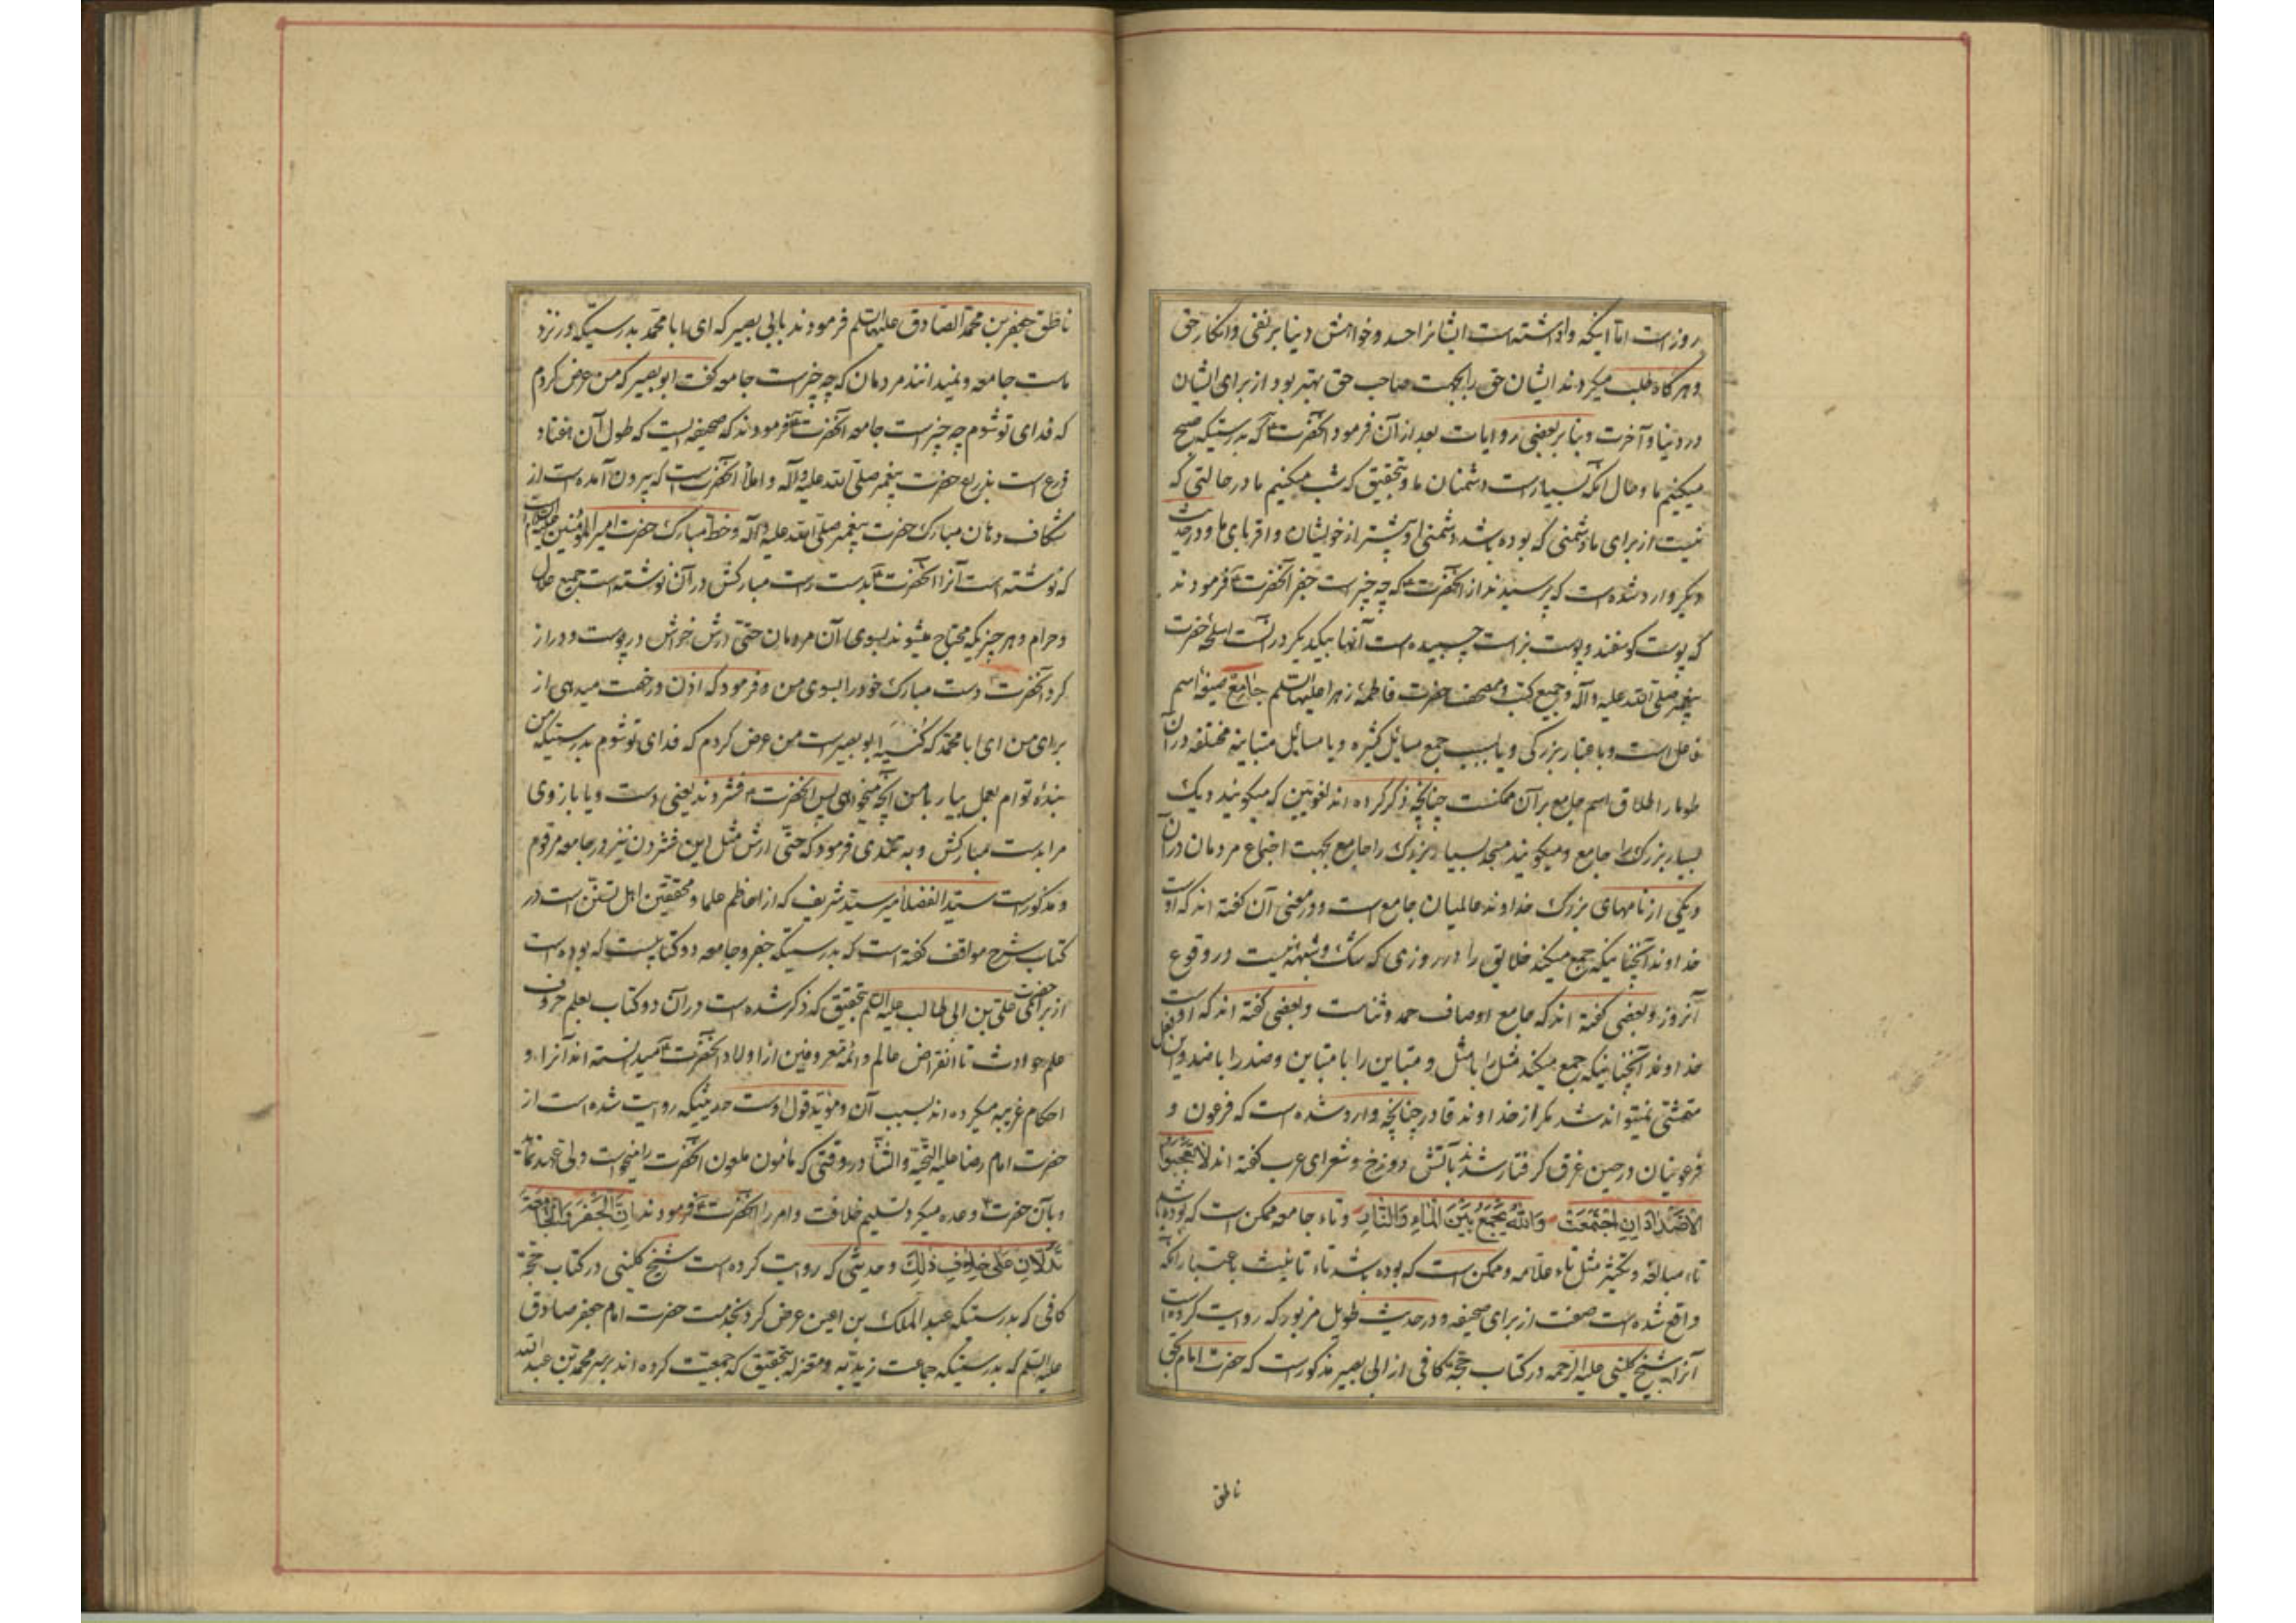 روز است اما اینکه واداشته است ایشانرا حسد و خواهش دنیا بر نفی و انکار حق
و هر گاه طلب میکردند ایشان حق را بجهت صاحب حق بهتر بود از برای ایشان
در دنیا و آخرت و بنا بر بعضی روایات بعد از آن فرمود آنحضرت ۴ که بدرستیکه صبح
میکنیم ما و حال آنکه بسیار است دشمنان ما و بتحقیق که شب میکنیم ما در حالتی که
نیست از برای ما دشمنی که بوده باشد دشمنی او بیشتر از خویشان و اقربای ما و در حدیث
دیگر وارد شده است که پرسیدند از آنحضرت ۴ که چه چیز است جفر آنحضرت ۴ فرمودند
که پوست کوسفند و پوست بز است چسبیده است آنها بیکدیگر در آنست اسلحه حضرت
پیغمبر صلی الله علیه و آله و جمیع کتب و مصحف حضرت فاطمه زهرا علیها السلم جامع صیغه اسم
فاعل است و باعتبار بزرگی و یا بسبب جمع مسائل کثیره و یا مسائل متباینه مختلفه در آن
طومار اطلاق اسم جامع بر آن ممکنست چنانچه ذکر کرده اند لغویین که میکویند دیک
بسیار بزرک را جامع و میکویند مسجد بسیار بزرک را جامع بجهت اجتماع مردمان در آن
و یکی از نامهای بزرک خداوند عالمیان جامع است و در معنی آن کفته اند که اوست
خداوند آنچنانیکه جمع میکند خلایق را در روزی که شک و شبهه نیست در وقوع
آنروز و بعضی کفته اند که جامع اوصاف حمد و ثناست و بعضی کفته اند که اوست
خداوند آنچنانیکه جمع میکند مثل را با مثل و متباین را با متباین و ضد را با ضد و این فعل
متمشی نمیتواند شد مکر از خداوند قادر چنانچه وارد شده است که فرعون و
فرعونیان در حین غرق کرفتار شدند بآتش دوزخ و شعرای عرب کفته اند لا تعجبوا
الاضداد ان اجتمعت والله یجمع بین الماء والنار و تاء جامعه ممکن است که بوده باشد
تاء مبالغه و تکثیر مثل تاء علامه و ممکن است که بوده باشد تاء تانیث باعتبار آنکه
واقع شده است صفت از برای صحیفه و در حدیث طویل مزبور که روایت کرده است
آنرا شیخ کلینی علیه الرحمه در کتاب حجة کافی از ابی بصیر مذکور است که حضرت امام بحق
ناطق
ناطق جعفر بن محمد الصادق علیهما السلم فرمودند بابی بصیر که ای ابا محمد بدرستیکه در نزد
ماست جامعه و نمیدانند مردمان که چه چیز است جامعه کفت ابو بصیر که من عرض کردم
که فدای تو شوم چه چیز است جامعه آنحضرت ۴ فرمودند که صحیفه ایست که طول آن هفتاد
ذرع است بذرع حضرت پیغمبر صلی الله علیه و آله و املاء آنحضرت است که بیرون آمده است از
شکاف دهان مبارک حضرت پیغمبر صلی الله علیه و آله و خط مبارک حضرت امیر المؤمنین علیه السلام است
که نوشته است آنرا آنحضرت ۴ بدست راست مبارکش در آن نوشته است جمیع حلال
و حرام و هر چیزیکه محتاج میشوند بسوی آن مردمان حتی ارش خراش در پوست و دراز
کرد آنحضرت دست مبارک خود را بسوی من و فرمود که اذن و رخصت میدهی از
برای من ای ابا محمد که کنیه ابو بصیر است من عرض کردم که فدای تو شوم بدرستیکه من
بنده توام بعمل بیار با من آنچه میخواهی پس آنحضرت ۴ فشردند یعنی دست و یا بازوی
مرا بدست مبارکش و به تندی فرمود که حتی ارش مثل این فشردن نیز در جامعه مرقوم
و مذکور است سید الفضلا میر سید شریف که از اعاظم علما و محققین اهل تسنن است در
کتاب شرح مواقف کفته است که بدرستیکه جفر و جامعه دو کتابیست که بوده است
از برای حضرت علی بن ابی طالب علیه السلم بتحقیق که ذکر شده است در آن دو کتاب بعلم حروف
علم حوادث تا انقراض عالم و ائمه معروفین از اولاد آنحضرت ۴ میدانسته اند آنرا و
احکام غریبه میکرده اند بسبب آن و مؤید قول اوست حدیثیکه روایت شده است از
حضرت امام رضا علیه التحیة والثناء در وقتی که مامون ملعون آنحضرت را میخواست ولی عهد نماید
و بآن حضرت ۴ وعده میکرد تسلیم خلافت و امر را آنحضرت ۴ فرمودند ان الجفر والجامعة
تدلان علی خلاف ذلک و حدیثی که روایت کرده است شیخ کلینی در کتاب حجة
کافی که بدرستیکه عبد الملک بن اعین عرض کرد بخدمت حضرت امام جعفر صادق
علیه السلم که بدرستیکه جماعت زیدیه و معتزله بتحقیق که جمعیت کرده اند بر سر محمد بن عبد الله